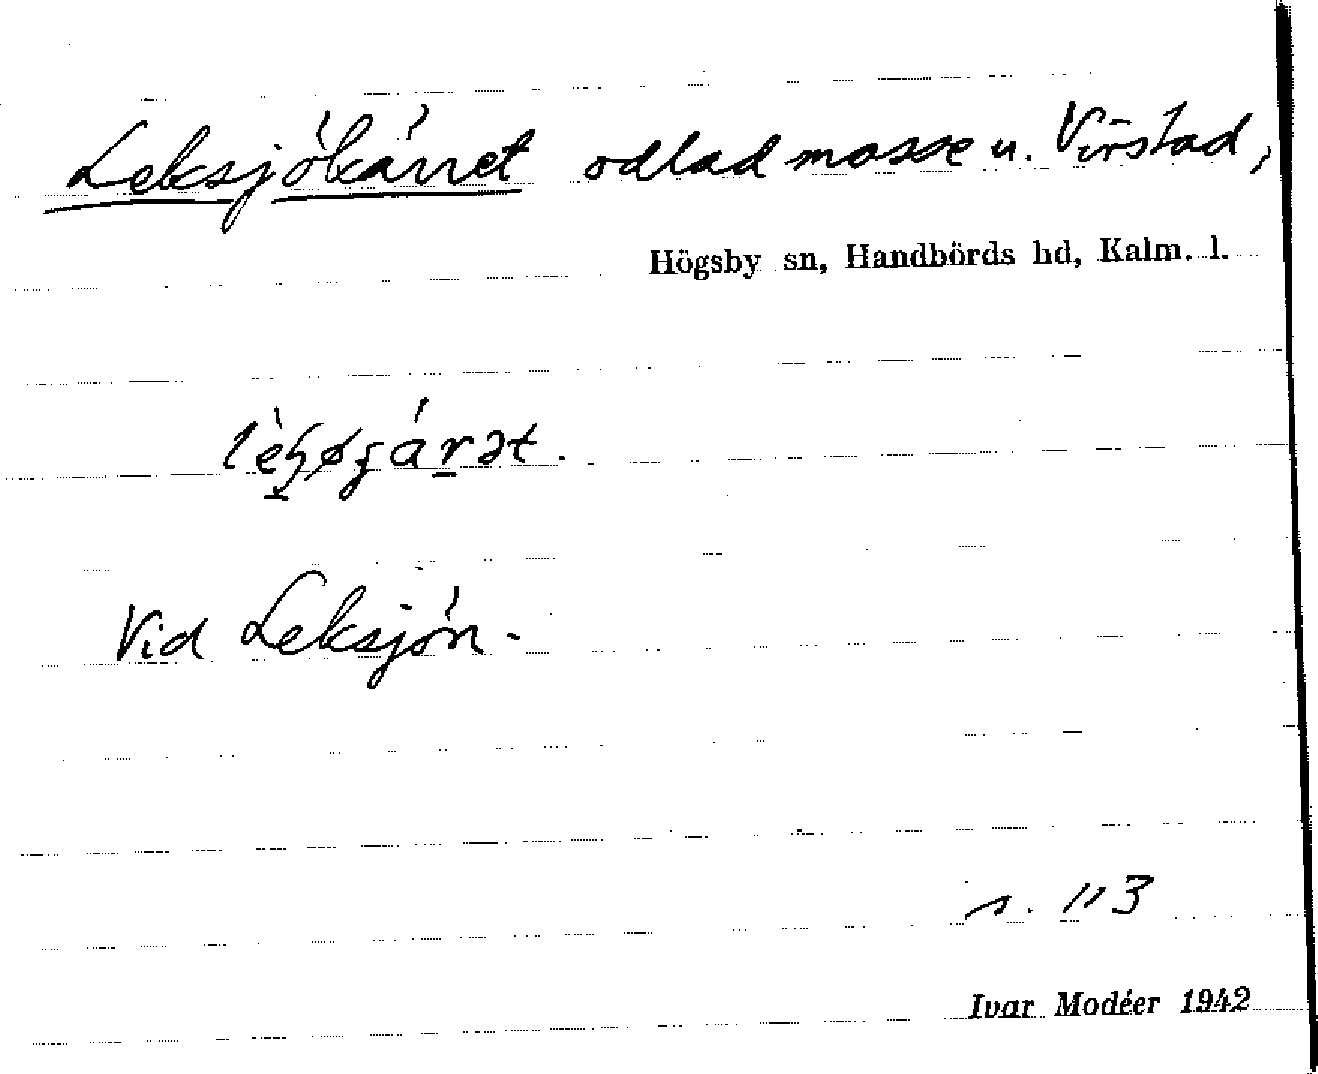 Leksjökärret odlad mosse u. Virstad,
Högsby sn, Handbörds hd, Kalm. l.
Vid Leksjön.
s. 113
Ivar Modéer 1942